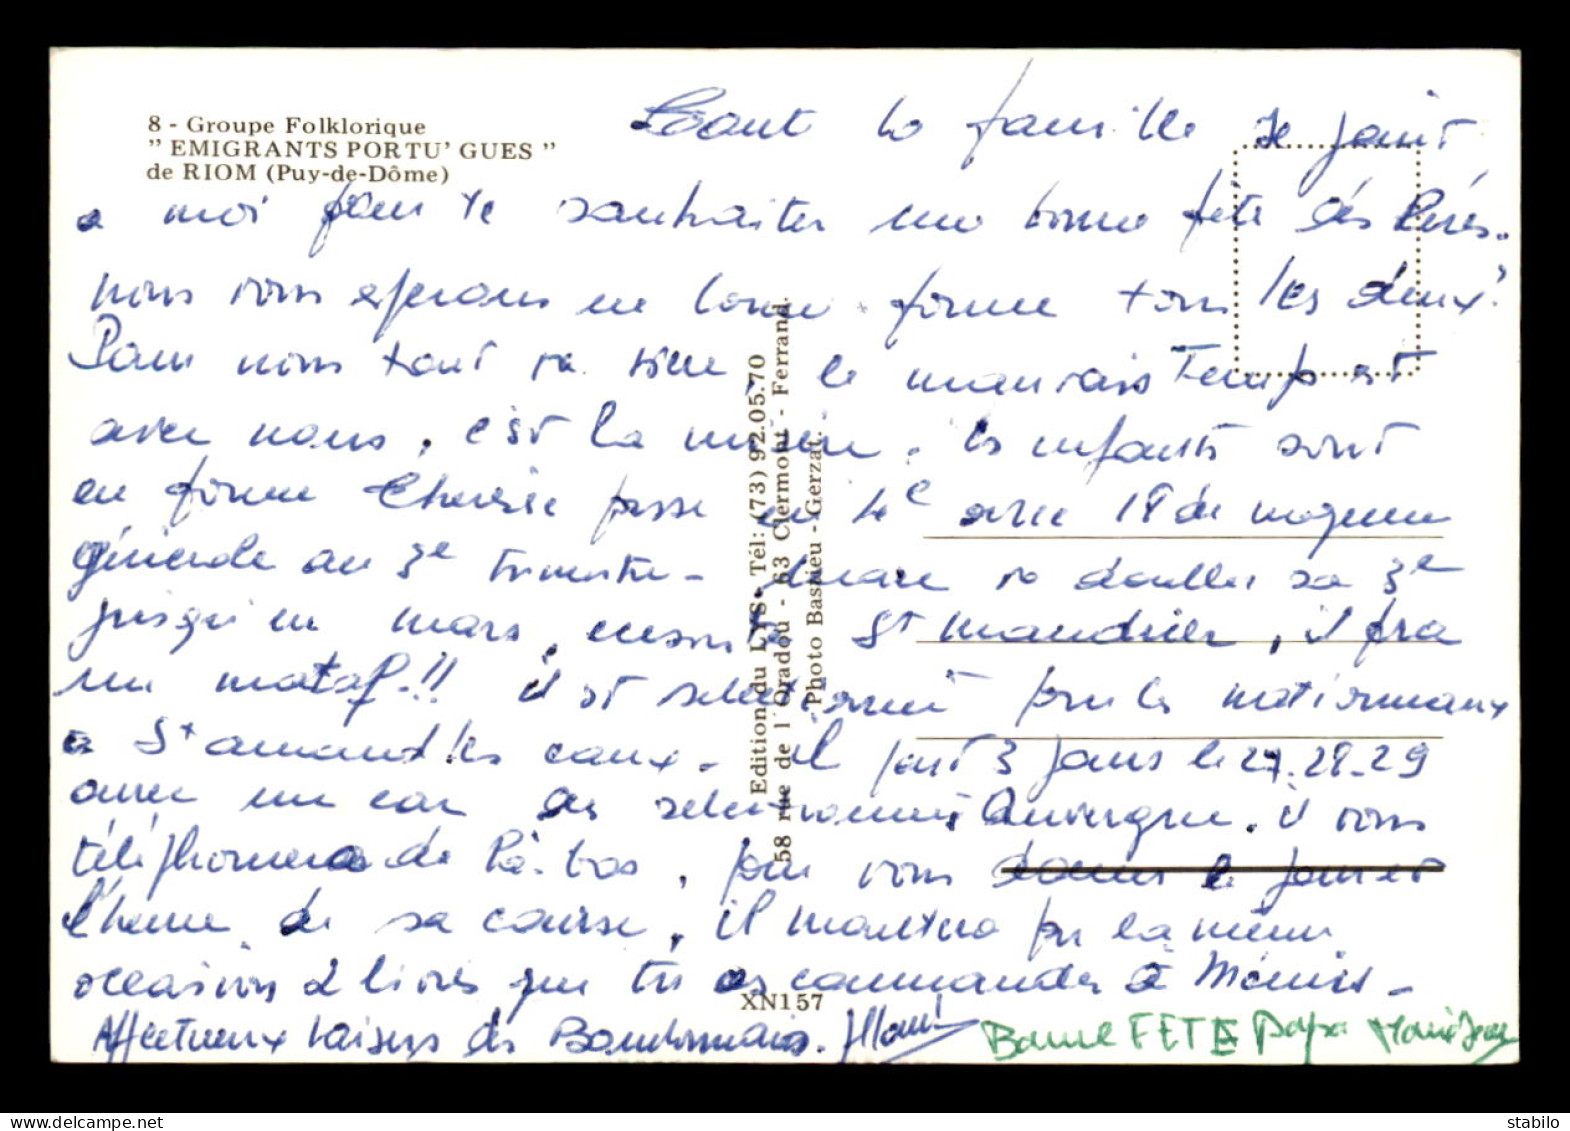 8 - Groupe Folklorique
" EMIGRANTS PORTU' GUES "
de RIOM (Puy-de-Dôme)
Toute la famille se joint
a moi pour te souhaiter une bonne fête des Pères.
nous vous esperons en bonne forme tous les deux
Pour nous tout va bien, le mauvais Temps est
avec nous, c'est la même. les enfants sont
en forme passe en 4e avec 18 de moyenne
générale au 3e trimestre - va doubler sa 3e
jusqu'en mars, ensuite St mandrier, il fera
un mataf.!! il est selectionné pour les nationnaux
a St amand les eaux - il part 3 jours le 27.28.29
avec un car des selectionnés Auvergne. il vous
téléphonera de là-bas, pour vous donner le jour et
l'heure de sa course, il mettra par la même
occasion 2 livres que tu as commandes à
Affectueux baisers des
Bonne FETE Papa Marie Jean
Edition du LYS - Tél: (73) 92.05.70
58 rue de l'Oradou - 63 Clermont - Ferrand.
Photo Bassieu - Gerzat.
XN157
delcampe.net
stabilo